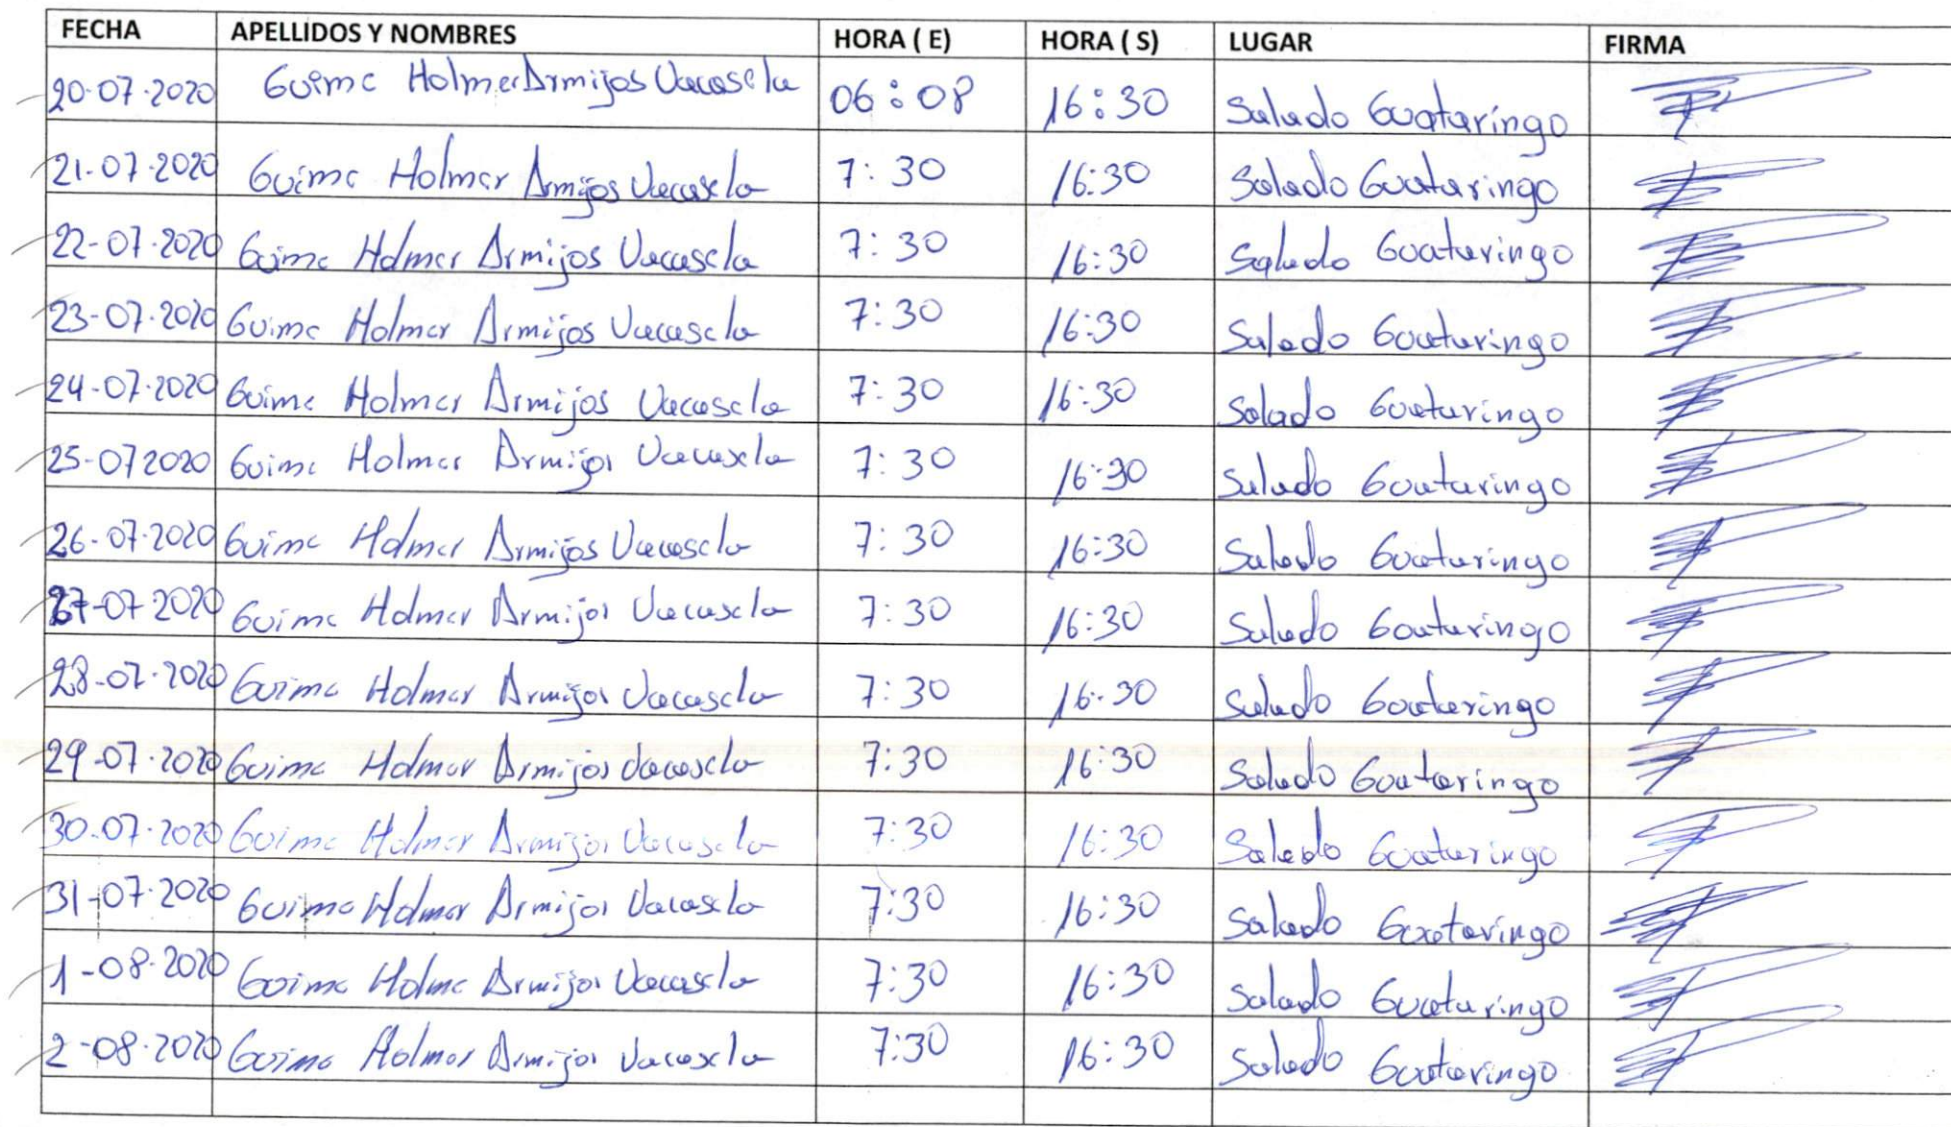 FECHA APELLIDOS Y NOMBRES HORA ( E) HORA ( S) LUGAR FIRMA
20-07-2020 Guime Holmer Armijos Vacasela 06:08 16:30 Salado Guataringo
21-07-2020 Guime Holmer Armijos Vacasela 7:30 16:30 Salado Guataringo
22-07-2020 Guime Holmer Armijos Vacasela 7:30 16:30 Salado Guataringo
23-07-2020 Guime Holmer Armijos Vacasela 7:30 16:30 Salado Guataringo
24-07-2020 Guime Holmer Armijos Vacasela 7:30 16:30 Salado Guataringo
25-07 2020 Guime Holmer Armijos Vacasela 7:30 16:30 Salado Guataringo
26-07-2020 Guime Holmer Armijos Vacasela 7:30 16:30 Salado Guataringo
27-07 2020 Guime Holmer Armijos Vacasela 7:30 16:30 Salado Guataringo
28-07-2020 Guime Holmer Armijos Vacasela 7:30 16:30 Salado Guataringo
29-07-2020 Guime Holmer Armijos Vacasela 7:30 16:30 Salado Guataringo
30-07-2020 Guime Holmer Armijos Vacasela 7:30 16:30 Salado Guataringo
31-07-2020 Guime Holmer Armijos Vacasela 7:30 16:30 Salado Guataringo
1-08-2020 Guime Holme Armijos Vacasela 7:30 16:30 Salado Guataringo
2-08-2020 Guime Holmer Armijos Vacasela 7:30 16:30 Salado Guataringo